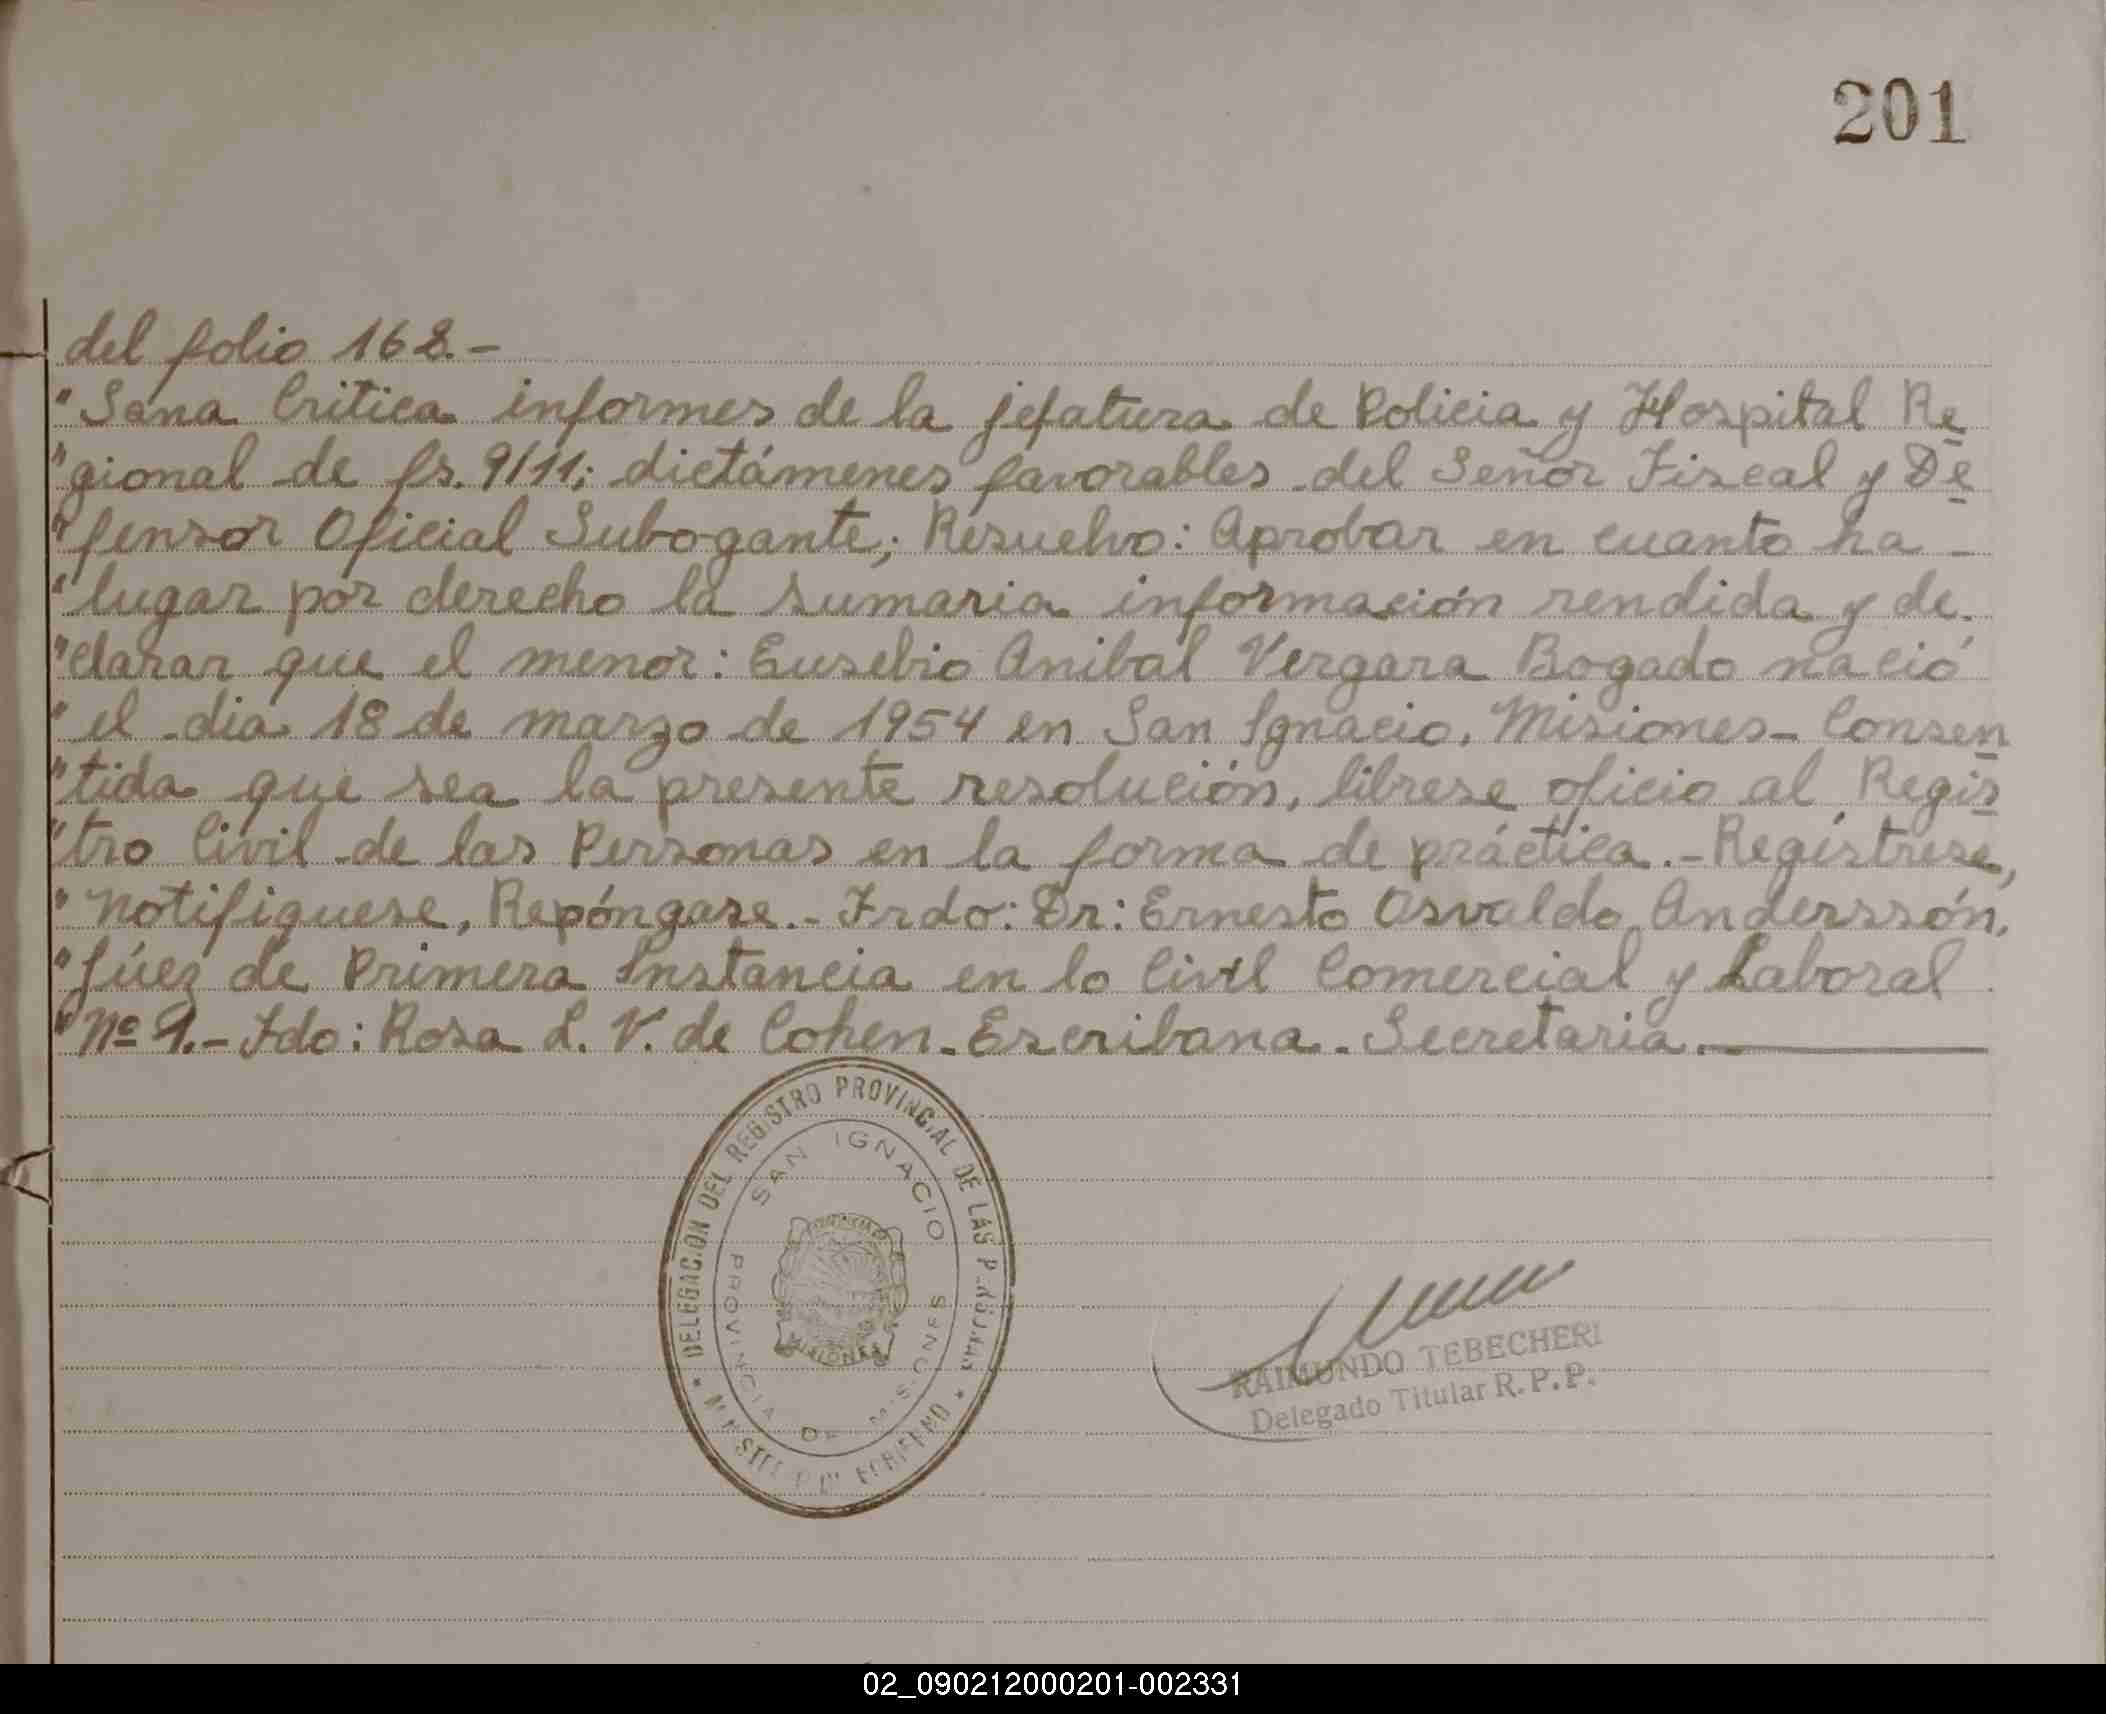 201
del folio 168.-
"Sana Critica informes de la jefatura de Policia y Hospital Re
"gional de fs. 9/11; dictámenes favorables del Señor Fiscal y De
"fensor Oficial Subogante; Resuelvo: Aprobar en cuanto ha -
"lugar por derecho la sumaria información rendida y de.
"clarar que el menor: Eusebio Anibal Vergara Bogado nació
"el dia 18 de marzo de 1954 en San Ignacio, Misiones- Consen
"tida que sea la presente resolución, librese oficio al Regis
"tro Civil de las Personas en la forma de práctica.- Registrese,
"notifiquese, Repóngase.- Frdo: Dr: Ernesto Osvaldo Anderssón,
"Júez de Primera Instancia en lo Civil Comercial y Laboral
"Nº 1.- Fdo: Rosa L. V. de Cohen- Escribana- Secretaria.-
DELEGACION DEL REGISTRO PROVINCIAL DE LAS
SAN IGNACIO
PROVINCIA DE MISIONES
MISIONES
RAIMUNDO TEBECHERI
Delegado Titular R.P.P.
02_090212000201-002331